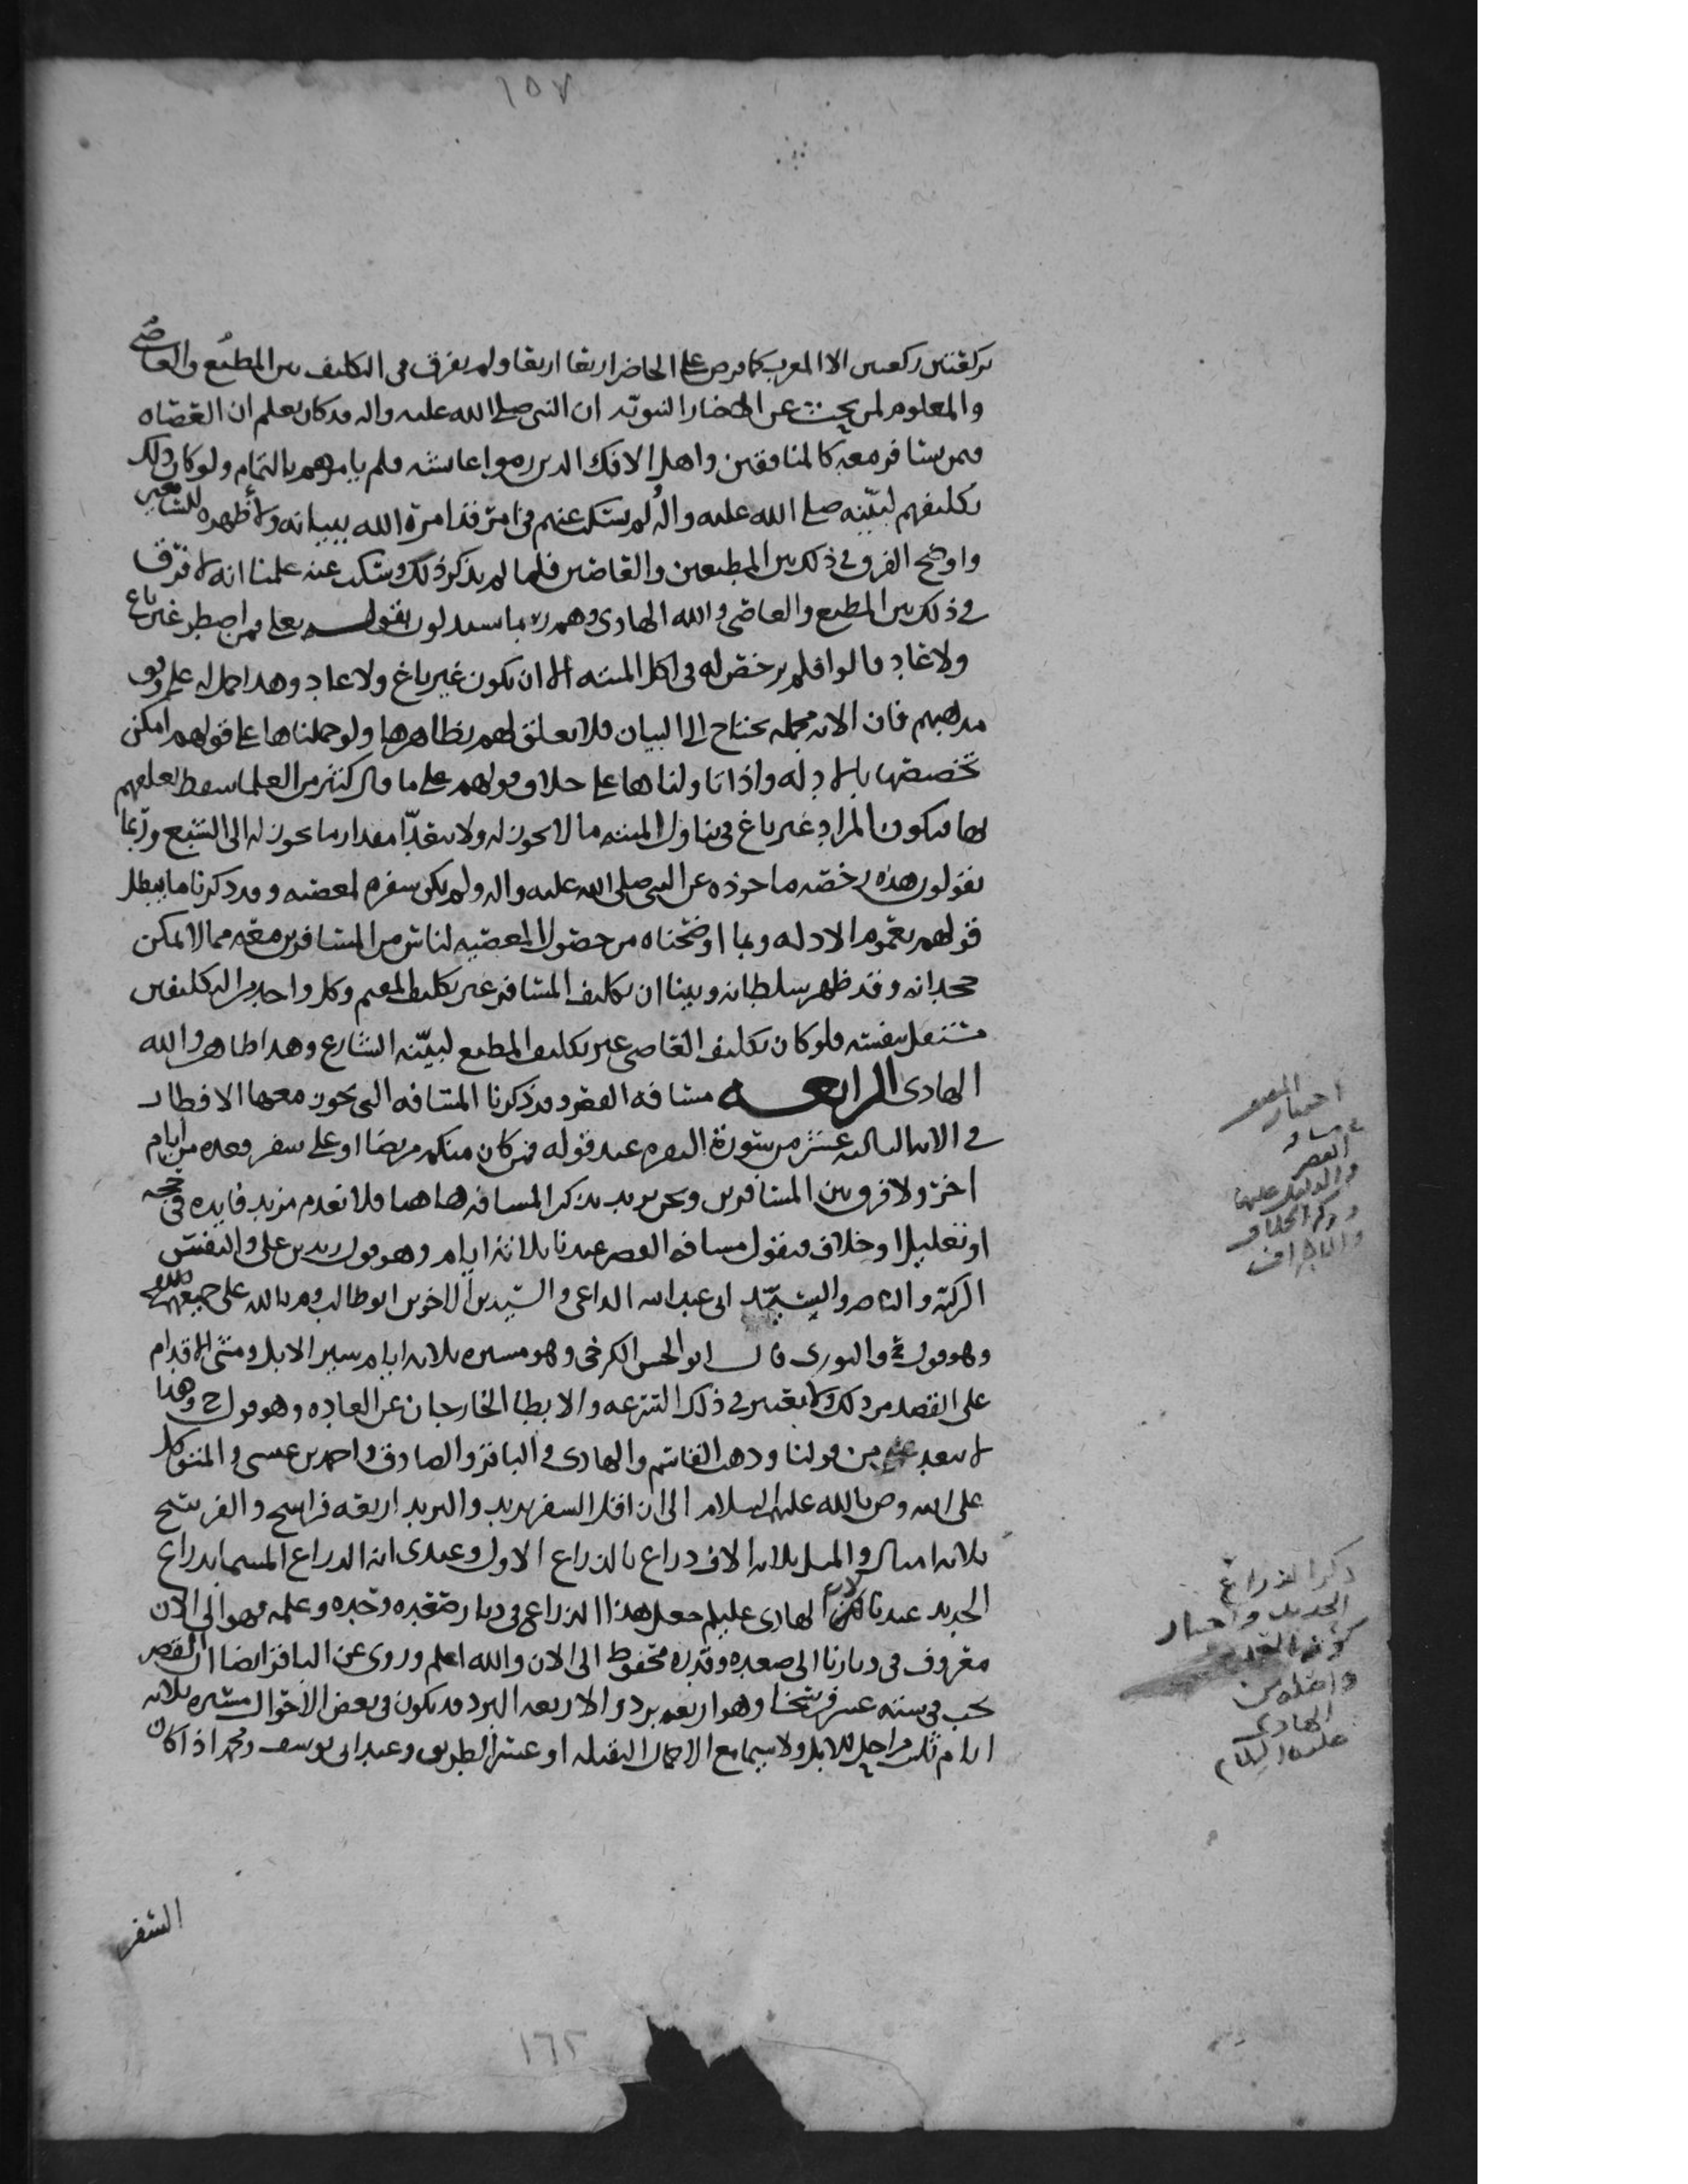 ١٥٧
بركعتين ركعتين الا المغرب كما فرض على الحاضر اربعا اربعا ولم يفرق في التكليف بين المطيع والعاصي
والمعلوم لمن يبحث عن الاخبار النبويه ان النبي صلى الله عليه واله قد كان يعلم ان العصاه
فمن يسافر معه كالمنافقين واهل الافك الذين رموا عائشه فلم يامرهم بالتمام ولو كان ذلك
تكليفهم لبينه صلى الله عليه واله لم يسكت عنهم في امر قد امره الله ببيانه ولأظهره للسامعين
واوضح الفرق في ذلك بين المطيعين والعاصين فلما لم يذكر ذلك وسكت عنه علمنا انه لا فرق
في ذلك بين المطيع والعاصي والله الهادي وهم ربما يستدلون بقوله تعلى فمن اضطر غير باغ
ولا عاد قالوا فلم يرخص له في اكل الميته الا ان يكون غير باغ ولا عاد وهذا حمل له على وفق
مذهبهم فان الايه مجمله تحتاج الى البيان فلا تعلق لهم بظاهرها ولو حملناها على قولهم امكن
تخصيصها بالادله واذا تاولناها على خلاف قولهم على ما قال كثير من العلما سقط تعلقهم
بها فيكون المراد غير باغ في تناول الميته ما لا يجوز له ولا يتعدا مقدار ما يجوز له الى الشبع وربما
يقولون هذه رخصه ماخوذه عن النبي صلى الله عليه واله ولم يكن سفره لمعصيه وقد ذكرنا ما يبطل
قولهم بعموم الادله وبما اوضحناه من حصول المعصيه لناس من المسافرين معه مما لا يمكن
جحدانه وقد ظهر سلطانه وبينا ان تكليف المسافر غير تكليف المقيم وكل واحد من التكليفين
مستقل بنفسه فلو كان تكليف العاصي غير تكليف المطيع لبينه الشارع وهذا ظاهر والله
الهادي الرابعه مسافه القصر وقد ذكرنا المسافه التي يجوز معها الافطار
في الايه الثالثه عشر من سورة البقره عند قوله فمن كان منكم مريضا او على سفر فعده من ايام
اخر ولا فرق بين المسافتين ونحن نريد بذكر المسافه هاهنا فلا نعدم مزيد فايده في حجه
او تعليل او خلاف فنقول مسافه القصر عندنا ثلاثة ايام وهو قول زيد بن علي والنفس
الزكيه والناصر والسيد ابي عبد الله الداعي والسيدين الاخوين ابو طالب وم بالله على جميعهم السلام
وهو قول والثوري قال ابو الحسن الكرخي وهو مسيره ثلاثه ايام بسير الابل ومشي الاقدام
على القصد من ذلك ولا يعتبر في ذلك السرعه والابطا الخارجان عن العاده وهو قول ح وهذا
لا يبعد من قولنا وذهب القاسم والهادي والباقر والصادق واحمد بن عيسى والمتوكل
على الله وص بالله عليهم السلام الى ان اقل السفر بريد والبريد اربعه فراسخ والفرسخ
ثلاثه اميال والميل ثلاثه الاف ذراع بالذراع الاول وعندي انه الذراع المسما بذراع
الحديد عندنا لان الهادي عليلم جعل هذا الذراع في ديار صعده وعلمه فهو الى الان
معروف في ديارنا الى صعده وقدره محفوظ الى الان والله اعلم وروي عن الباقر ايضا ان القصر
يجب في سته عشر فرسخا وهو اربعه برد والاربعه البرد قد يكون في بعض الاحوال مسيره ثلاثه
ايام ثلث مراحل للابل ولا سيما مع الاحمال الثقيله او عسر الطريق وعند ابي يوسف ومحمد اذا كان
السفر
اختيار المصنف
في مسافه
القصر
والدليل عليها
وذكر الخلاف
والاطراف
ذكر الذراع
الحديد واختيار
الهادي
عليه السلام
١٦٢